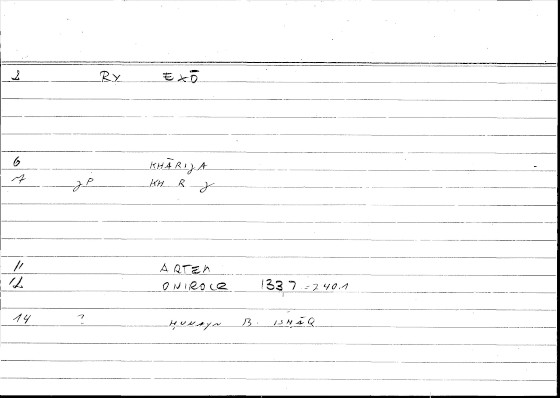 1 RY EXŌ
6 KHĀRIJA
7 JP KH R J
11 ARTEM
12 ONIROCR 1337 = 240.1
14 ? HUNAYN B. ISHĀQ